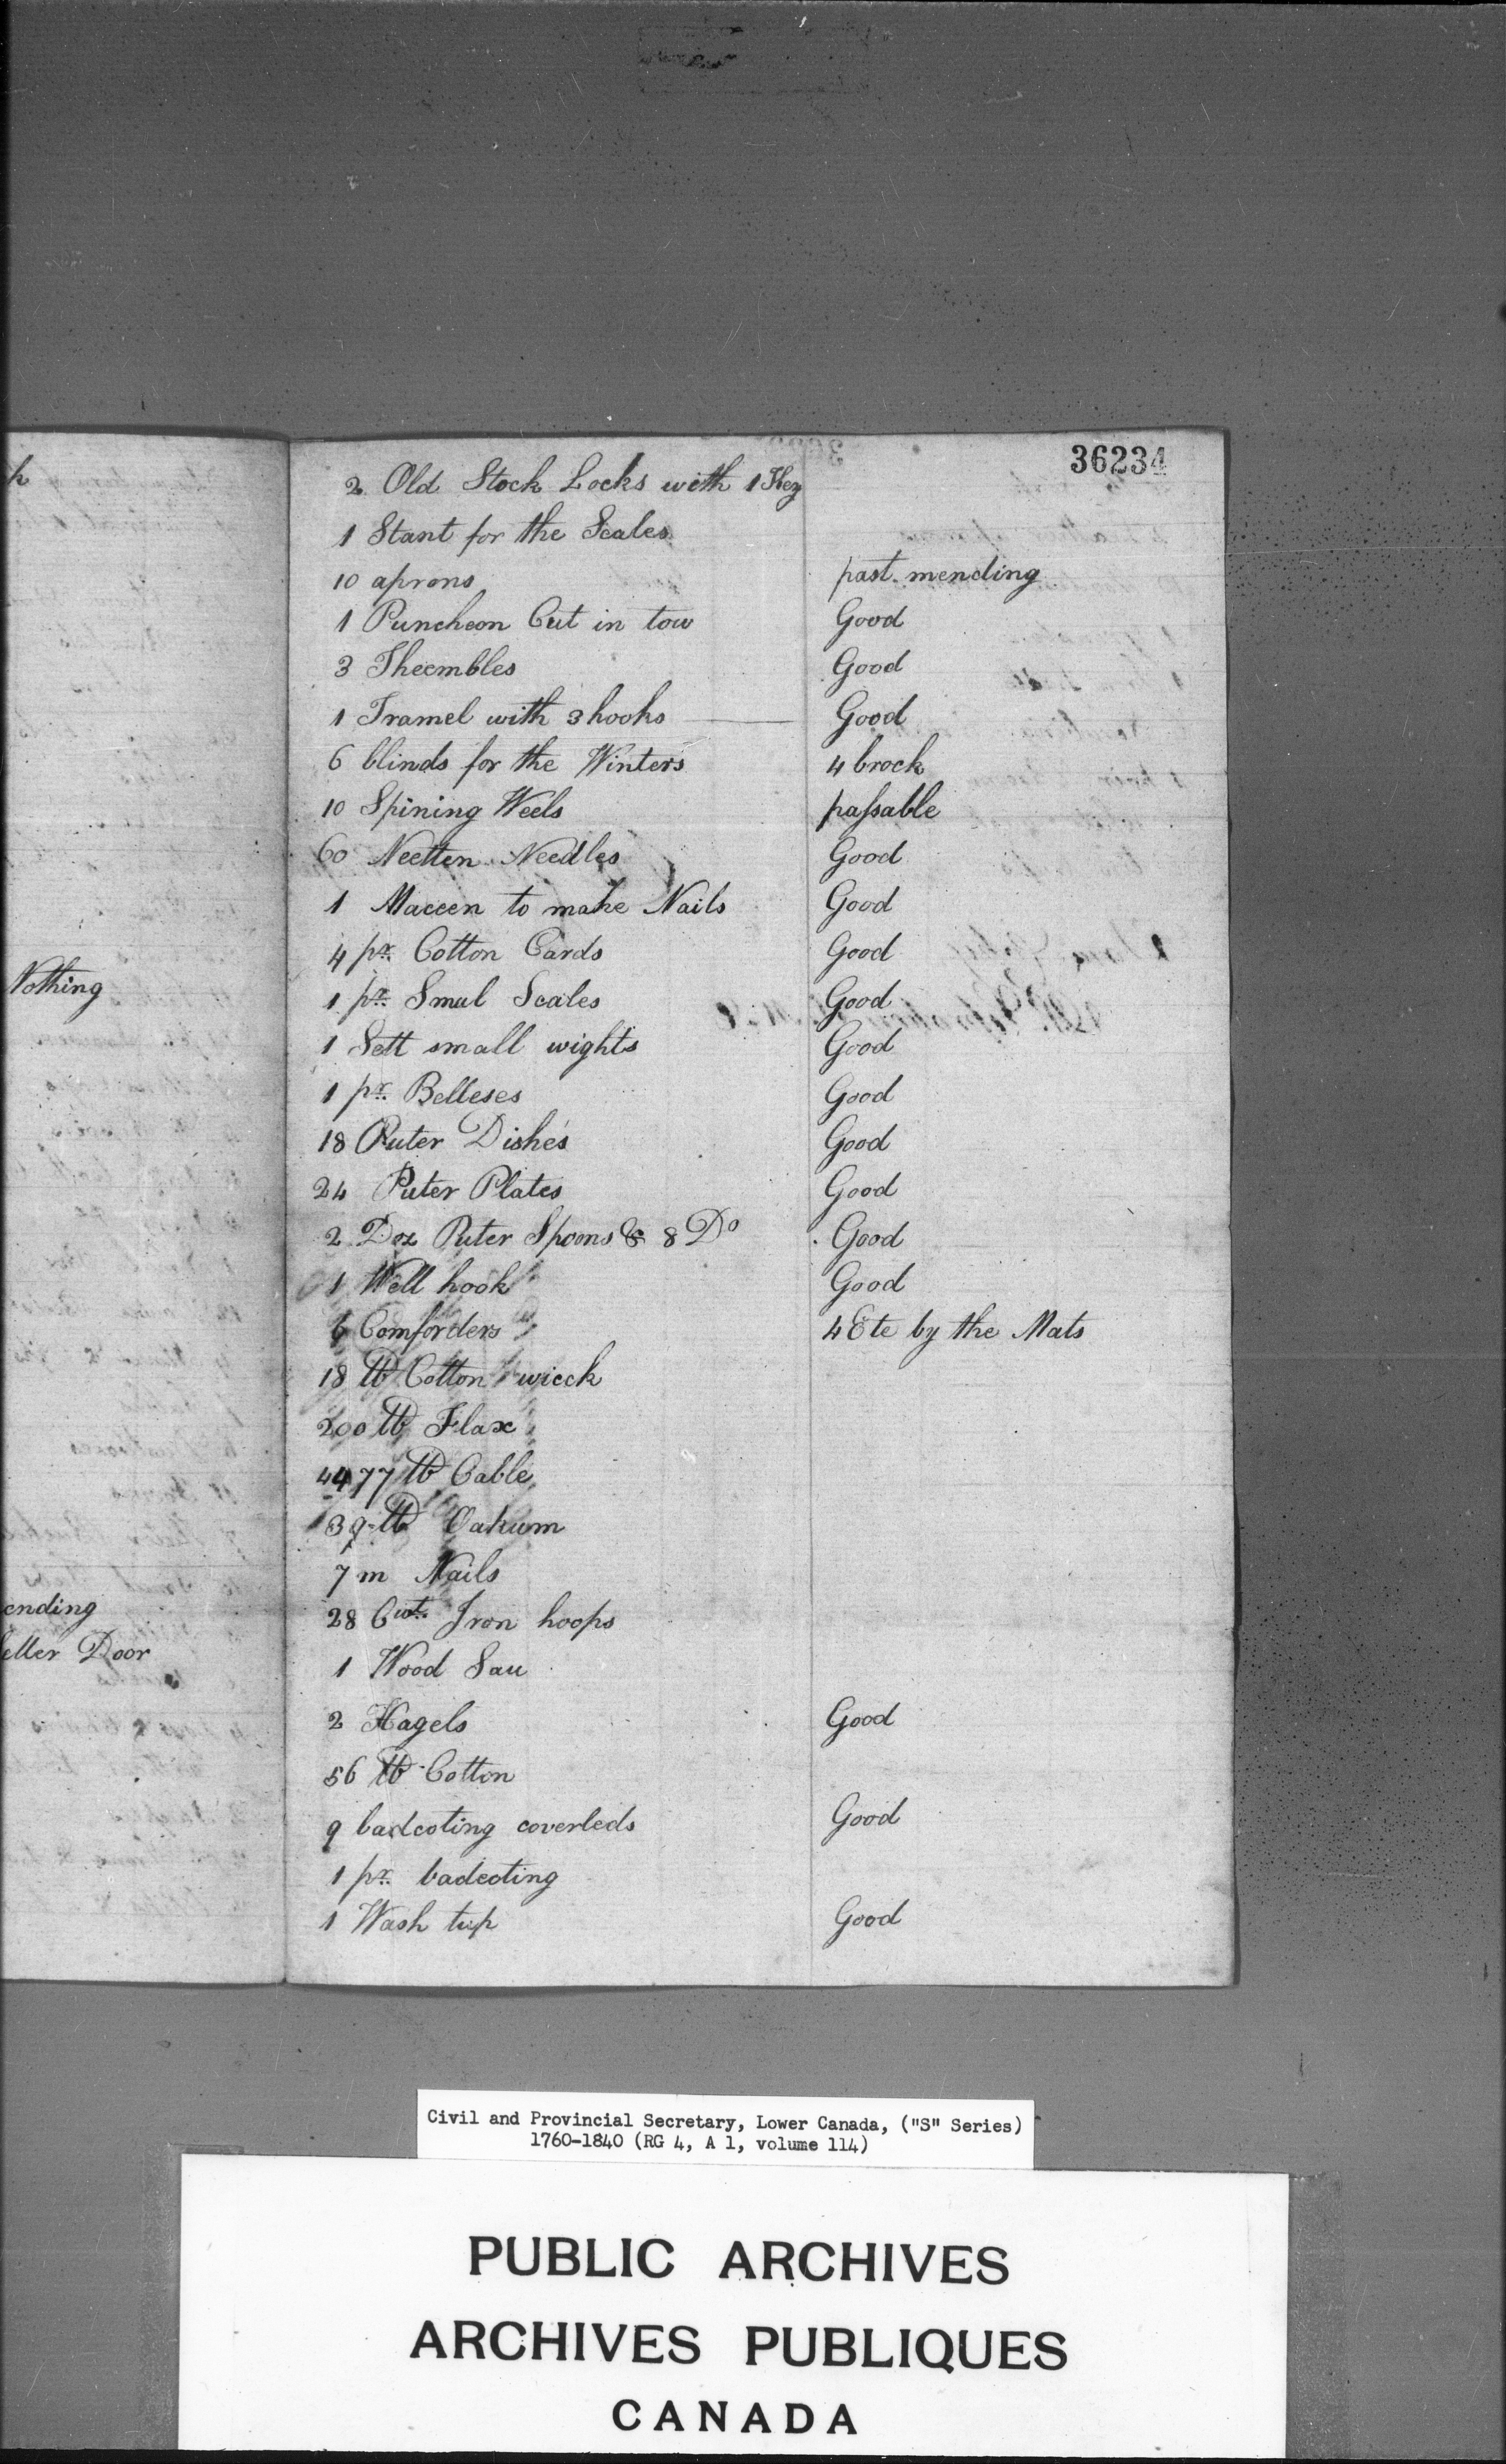 36234
2 Old Stock Locks with 1 Key
1 Stant for the Scales
10 aprons past mending
1 Puncheon Cut in tow Good
3 Theembles Good
1 Tramel with 3 hooks Good
6 blinds for the Winters 4 brock
10 Spining Weels paſsable
60 Neetten Needles Good
1 Maccen to make Nails Good
4 pr. Cotton Cards Good
1 pr. Smal Scales Good
1 Sett small wights Good
1 pr. Belleses Good
18 Puter Dishes Good
24 Puter Plates Good
2 Doz Puter Spoons & 8 Do Good
1 Well hook Good
6 Comforders 4 Ete by the Mats
18 lb Cotton wieck
200 lb Flax
4477 lb Cable
39 lb Oakum
7 m Nails
28 Cwt. Iron hoops
1 Wood Sau
2 Hagels Good
56 lb Cotton
9 badcoting coverleds Good
1 pr. badcoting
1 Wash tup Good
Nothing
ending
eller Door
Civil and Provincial Secretary, Lower Canada, ("S" Series)
1760-1840 (RG 4, A 1, volume 114)
PUBLIC ARCHIVES
ARCHIVES PUBLIQUES
CANADA